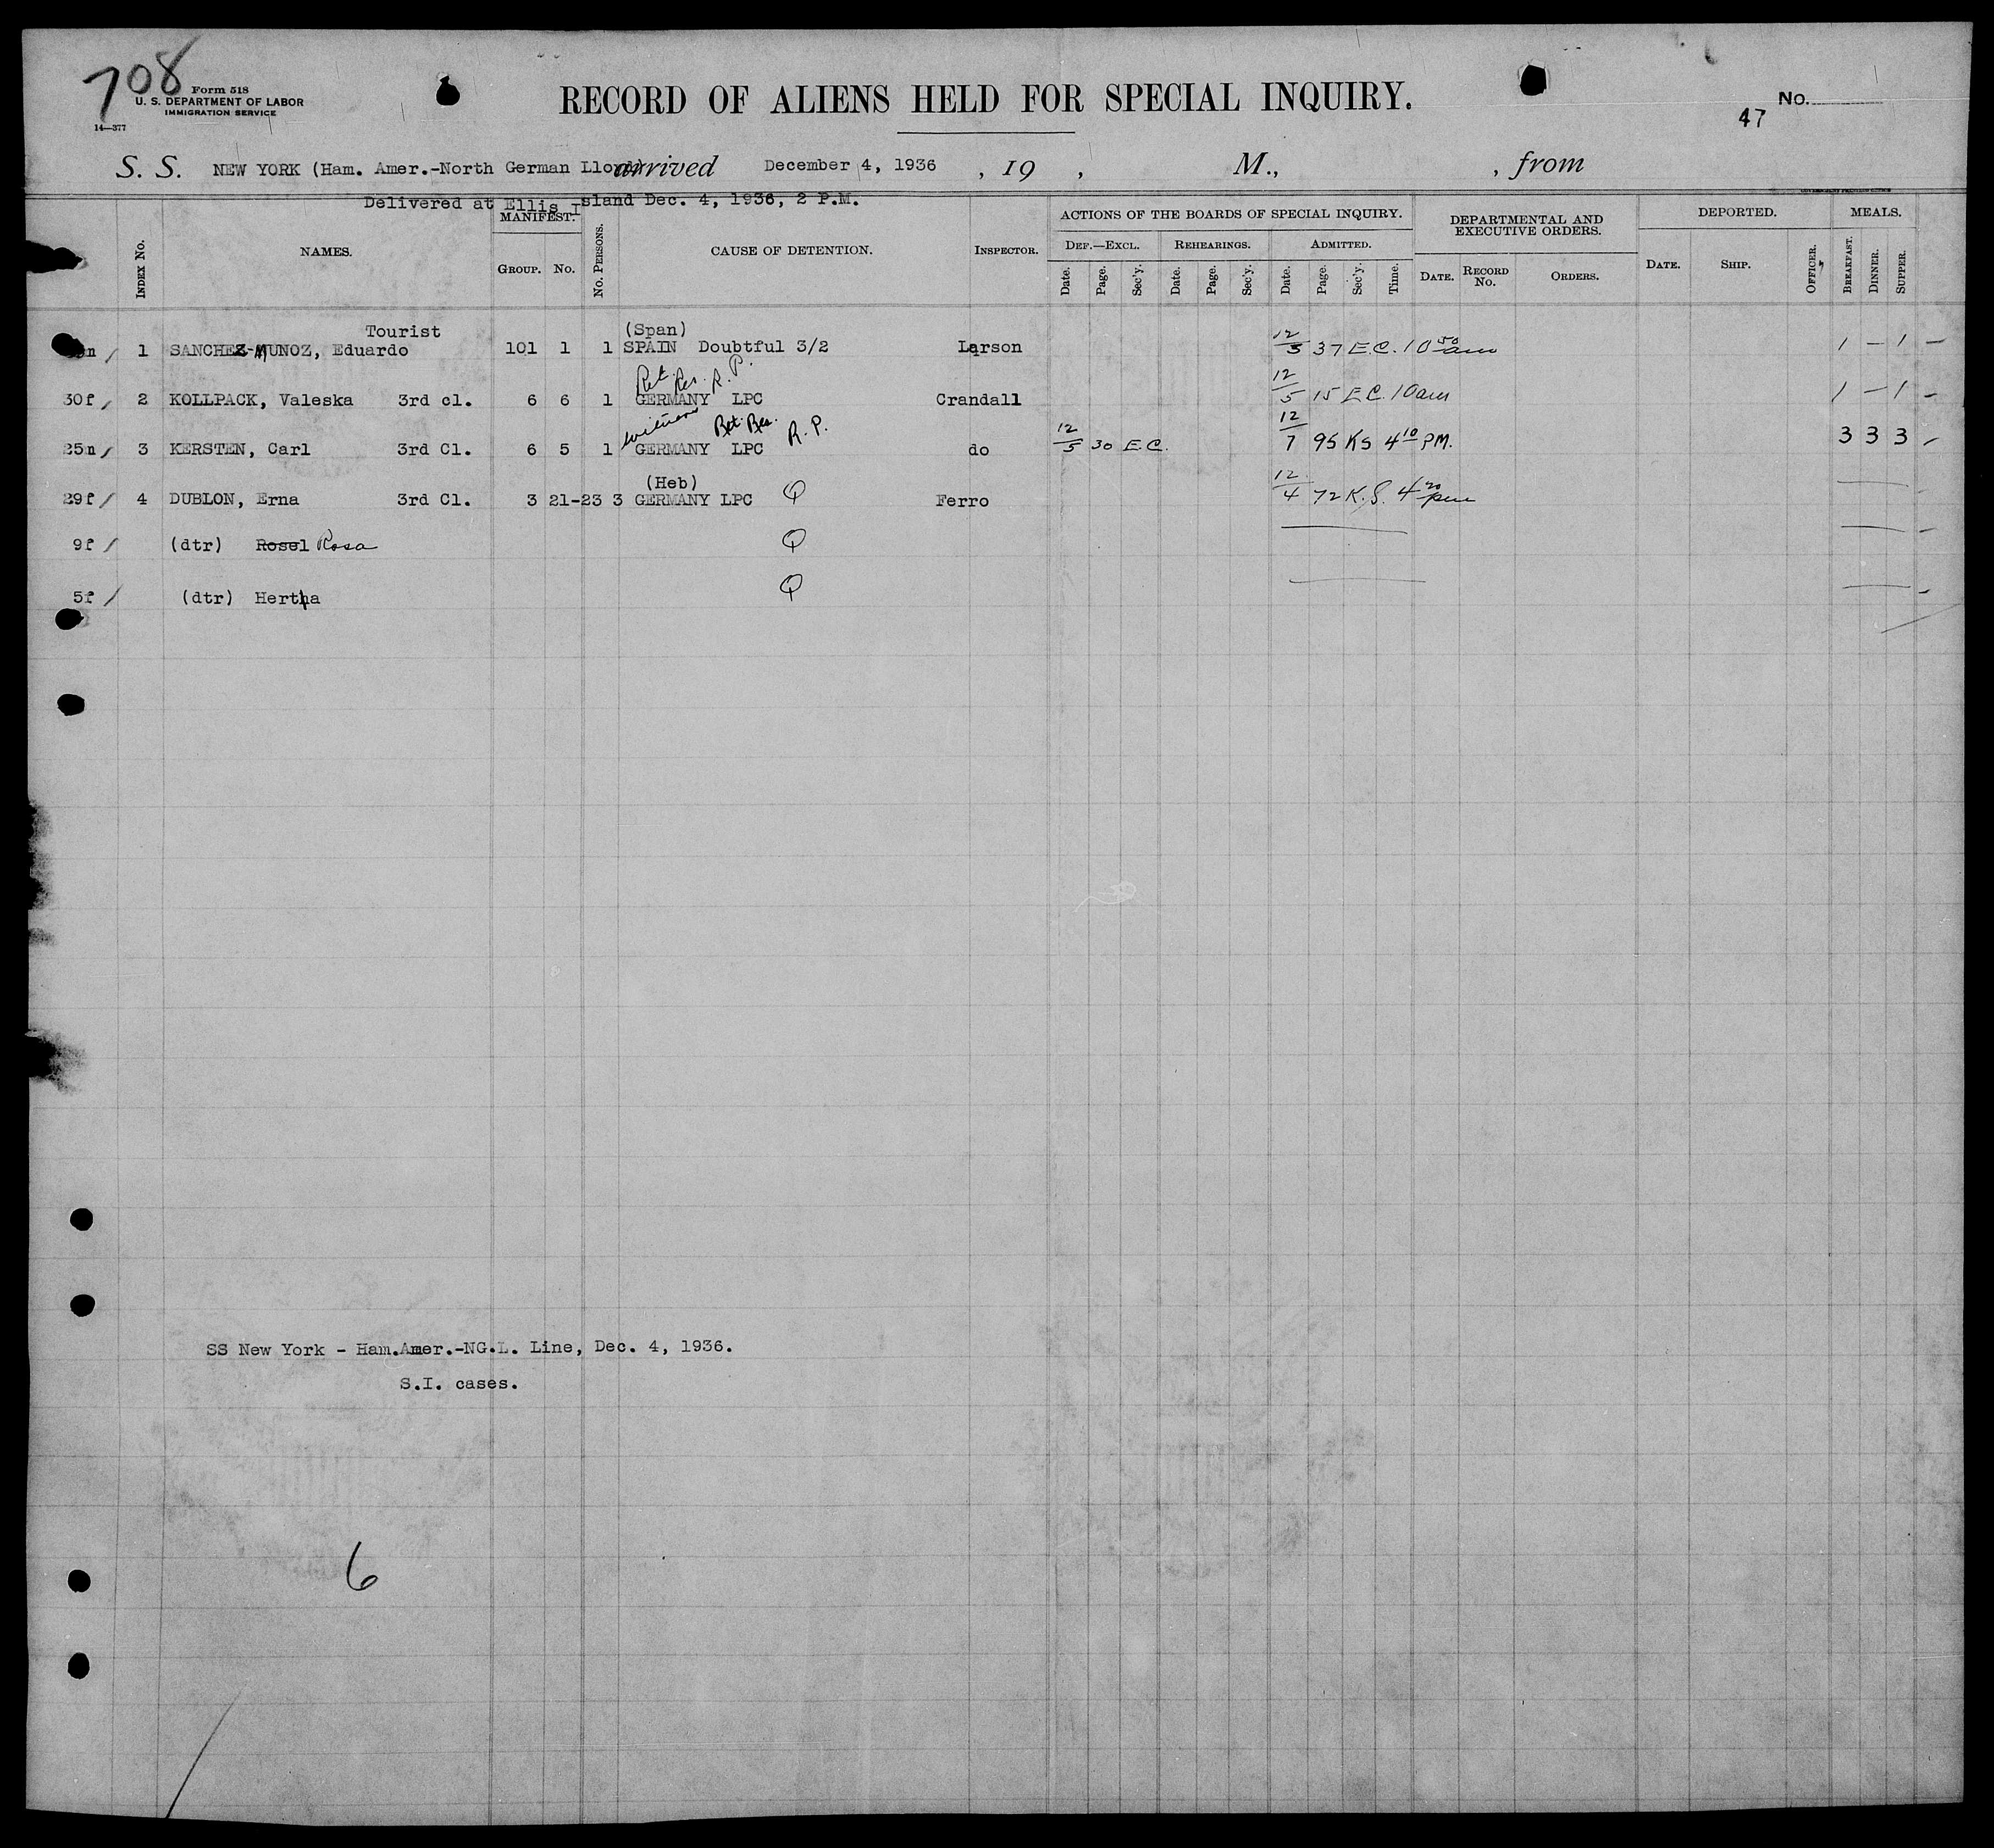 708
Form 518
U. S. DEPARTMENT OF LABOR
IMMIGRATION SERVICE
14—377
RECORD OF ALIENS HELD FOR SPECIAL INQUIRY.
No.
47
S. S. NEW YORK (Ham. Amer.-North German Lloyd) arrived December 4, 1936 , 19 , M., , from
Delivered at Ellis Island Dec. 4, 1936, 2 P.M.
INDEX NO. NAMES. MANIFEST. GROUP. NO. NO. PERSONS. CAUSE OF DETENTION. INSPECTOR. ACTIONS OF THE BOARDS OF SPECIAL INQUIRY. DEPARTMENTAL AND EXECUTIVE ORDERS. DEPORTED. MEALS.
DEF.—EXCL. REHEARINGS. ADMITTED.
Date. Page. Sec'y. Date. Page. Sec'y. Date. Page. Sec'y. Time. DATE. RECORD NO. ORDERS. DATE. SHIP. OFFICER. BREAKFAST. DINNER. SUPPER.
Tourist (Span)
1 SANCHEZ-MUNOZ, Eduardo 101 1 1 SPAIN Doubtful 3/2 Larson 12/5 37 E.C. 10 50 am 1 – 1 –
Ret. Res. R. P.
30f/ 2 KOLLPACK, Valeska 3rd cl. 6 6 1 GERMANY LPC Crandall 12/5 15 E C. 10 am 1 – 1 –
Ret. Res. R. P.
25m/ 3 KERSTEN, Carl 3rd Cl. 6 5 1 GERMANY LPC do 12/5 30 E.C. 12/7 95 KS 4 10 PM. 3 3 3 –
(Heb)
29f/ 4 DUBLON, Erna 3rd Cl. 3 21-23 3 GERMANY LPC Q Ferro 12/4 72 K.S. 4 20 pm
9f/ (dtr) Rosel Rosa Q
5f/ (dtr) Hertha Q
SS New York - Ham.Amer.-NG.L. Line, Dec. 4, 1936.
S.I. cases.
6